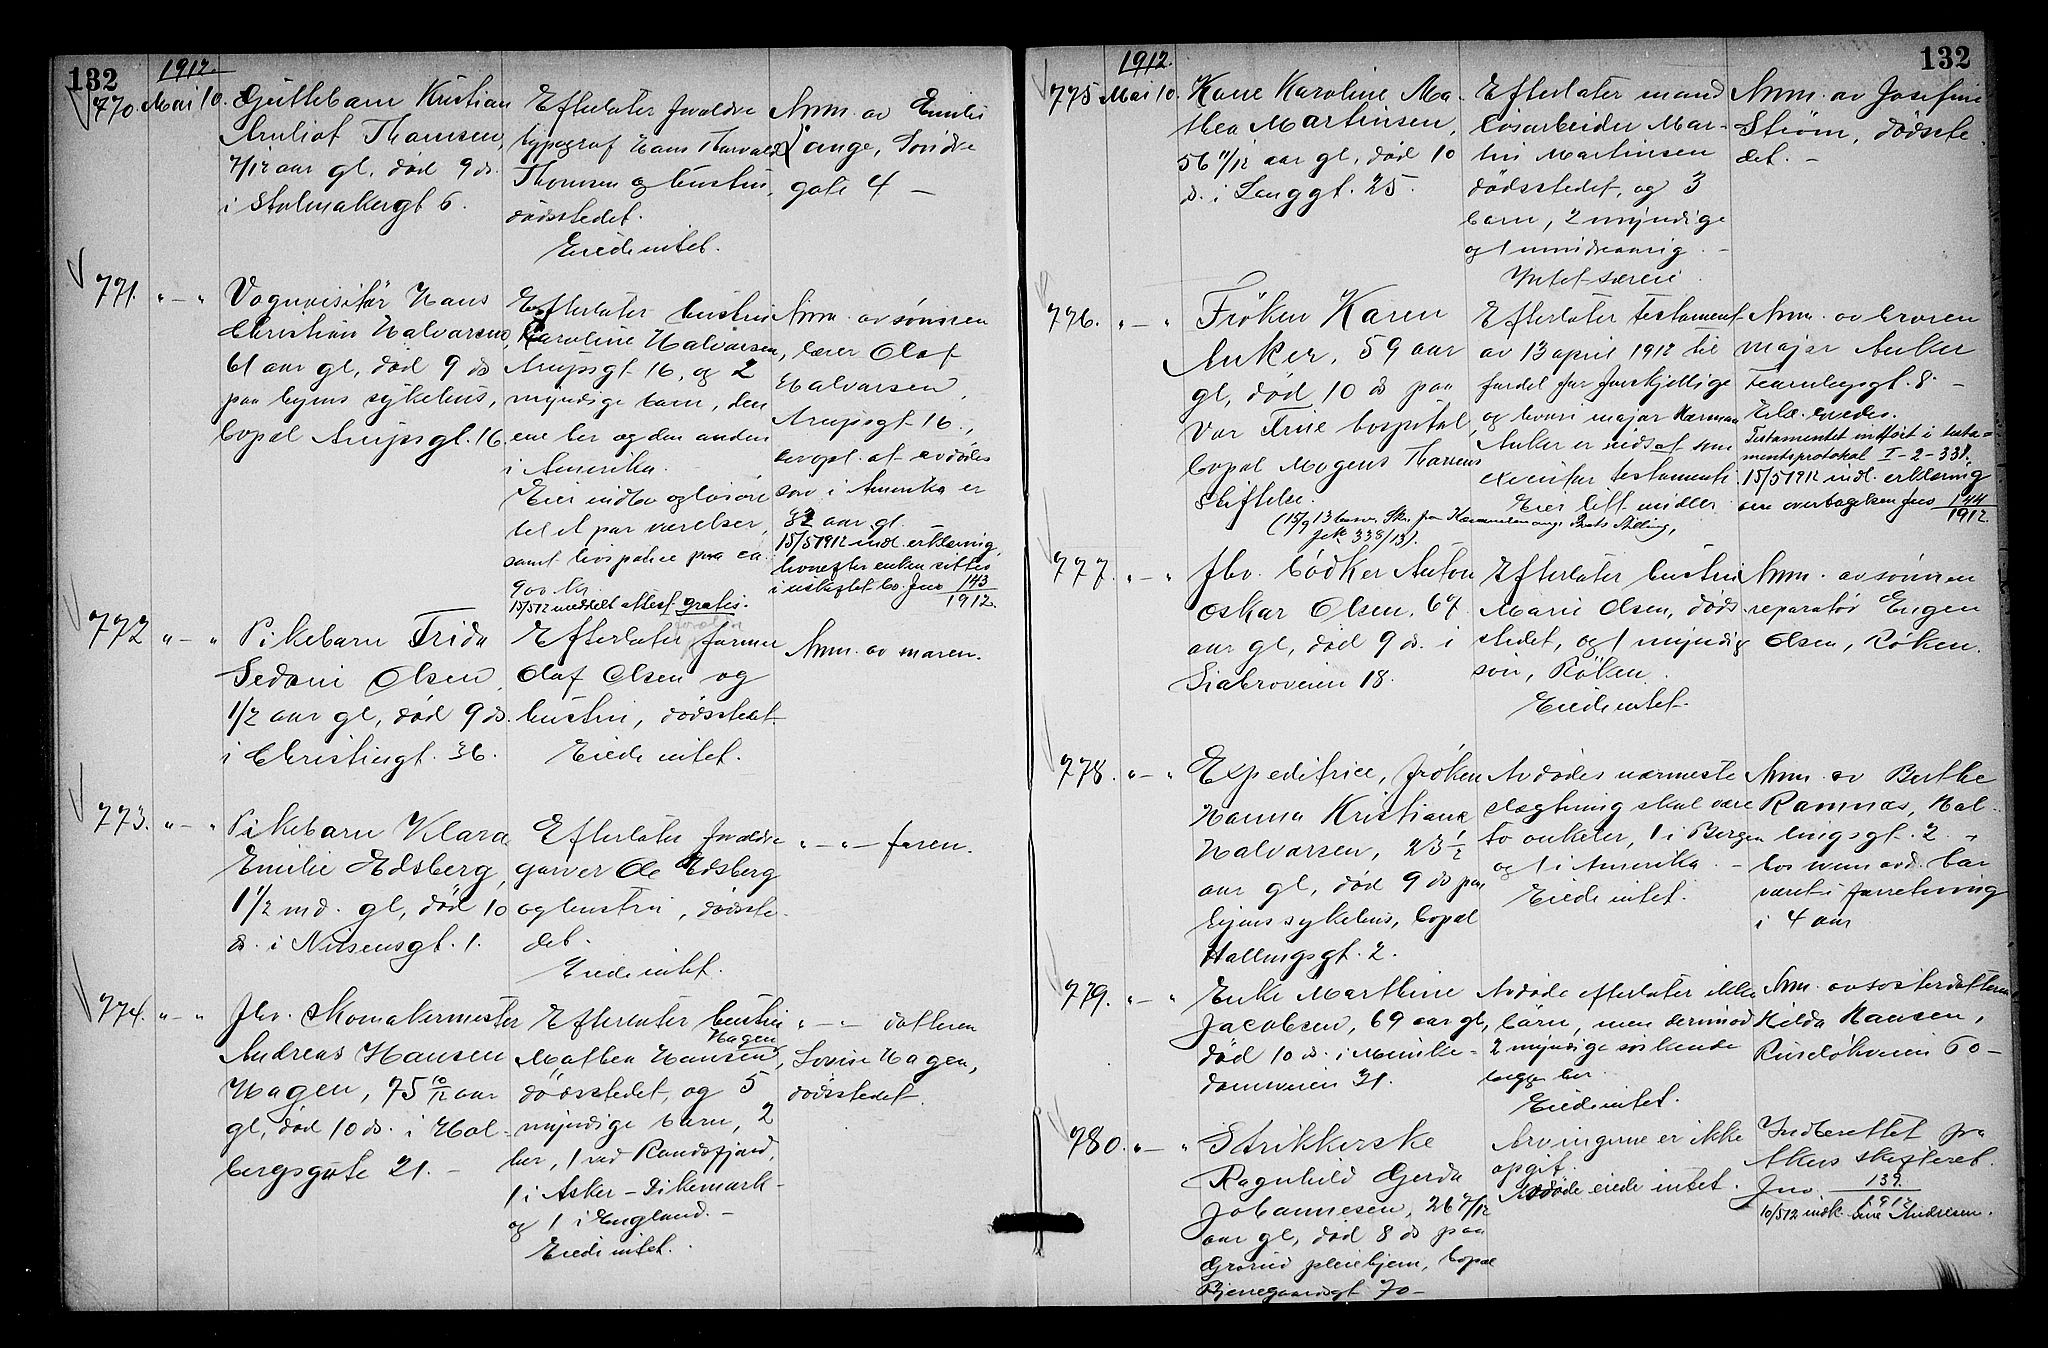 132
1912.
770. Mai 10.
Guttebarn Kristian
Arnliot Thomsen,
7/12 aar gl, död 9 ds.
i Stolmakergt 6.
Efterlater foreldre
typograf Hans Thorvald
Thomsen og hustru,
dödsstedet.
Eiede intet.
Anm. av Emilie
Lange, Söndre
gate 4 —
771. " — "
Vognvisitör Hans
Christian Halvorsen,
61 aar gl, död 9 ds
paa byens sykehus,
bopæl Arupsgt. 16.
Efterlater hustru
Karoline Halvorsen,
Arupsgt 16, og 2
myndige barn, den
ene her og den anden
i Amerika.
Eier indbo og lösöre
til et par værelser,
samt hospolice paa ca.
900 kr.
15/512 meddelt attest gratis.
Anm. av sönnen
lærer Olaf
Halvorsen,
Arupsgt 16.,
hvopl. at avdödes
sön i Amerika er
32 aar gl.
15/51912 indl. erklæring,
hvorefter enken sitter
i uskiftet bo Jno 143/1912.
772 " — "
Pikebarn Frida
Sedoni Olsen,
1/2 aar gl, död 9 ds.
i Christiesgt. 36.
Efterlater
Olaf Olsen og
hustru, dödsstedet
Eiede intet.
Anm. av moren.
773. " — "
Pikebarn Klara
Emilie Edsberg,
1 1/2 md. gl, död 10
ds. i Nissensgt. 1.
Efterlater foreldre
garver Ole Edsberg
og hustru, dödsste-
det.
Eiede intet.
" — " — faren.
774. " — "
Fhv. Skomakermester
Andreas Hansen
Hagen, 75 10/12 aar
gl, död 10 ds. i Hol-
bergsgate 21. —
Efterlater hustru
Hagen
Mathea Hansen,
dödsstedet, og 5
myndige barn, 2
her, 1 ved Randsfjord,
1 i Asker – Dikemark –
og 1 i England. —
Eiede intet.
" — " datteren
Lovise Hagen,
dödsstedet.
132
1912.
775 Mai 10.
Kone Karoline Ma-
thea Martinsen,
56 11/12 aar gl, död 10
ds. i Langgt. 25.
Efterlater mand
lösarbeider Mar-
tin Martinsen
dödsstedet, og 3
barn, 2 myndige
og 1 umindreaarig. —
Intet særeie.
Anm. av Josefine
Ström, dödsste-
det. —
776. " — "
Fröken Karen
Anker, 59 aar
gl, död 10 ds paa
Vor Frue hospital,
bopæl Mogens Thorsens
Stiftelse.
Efterlater testament
av 13 april 1912 til
fordel for forskjellige
og hvori major Herman
Anker er indsat som
executor testamenti
Eier litt midler.
(15/9 13 besv. Skr. fra
Jnk 338/13).
Anm. av broren
major Anker
Fearnleygt. 8. —
Testamentet indfört i testa-
mentsprotokol I – 2 – 338.
15/51912 indl. erklæring
om overtagelsen Jno 144/1912.
777. " — "
Fhv. bödker Anton
Oskar Olsen, 67
aar gl, död 9 ds. i
Diabroveien 18.
Efterlater hustru
Marie Olsen, döds-
stedet, og 1 myndig
sön, Röken.
Eiede intet.
Anm. av sönnen
reparatör Eugen
Olsen, Röken.
778. " — "
Expeditrice, fröken
Hanna Kristiane
Halvorsen, 23 1/2
aar gl, död 9 ds paa
byens sykehus, bopæl
Hallingsgt. 2.
Avdödes nærmeste
slægtning skal være
to onkeler, 1 i Bergen
og 1 i Amerika. —
Eiede intet.
Anm. av Berthe
Ramnæs, Hal-
lingsgt. 2. —
hos hvem avd. har
været i forretning
i 4 aar
779. " — "
Enke Marthine
Jacobsen, 69 aar gl,
död 10 ds. i Munke-
damsveien 31.
Avdöde efterlater ikke
barn, men derimod
2 myndige söskende
begge her.
Eiede intet.
Anm. av sösterdatteren
Hilda Hansen,
Ruselökveien 60 —
780. " — "
Strikkerske
Ragnhild Gerda
Johannesen, 26 7/12
aar gl, död 8 ds paa
Grorud pleiehjem, bopæl
Bjerregaardsgt 70 —
Arvingerne er ikke
opgit.
Avdöde eiede intet.
Indberettet fra
Akers skifteret.
Jno. 139/1912
10/512 indk. Andresen.